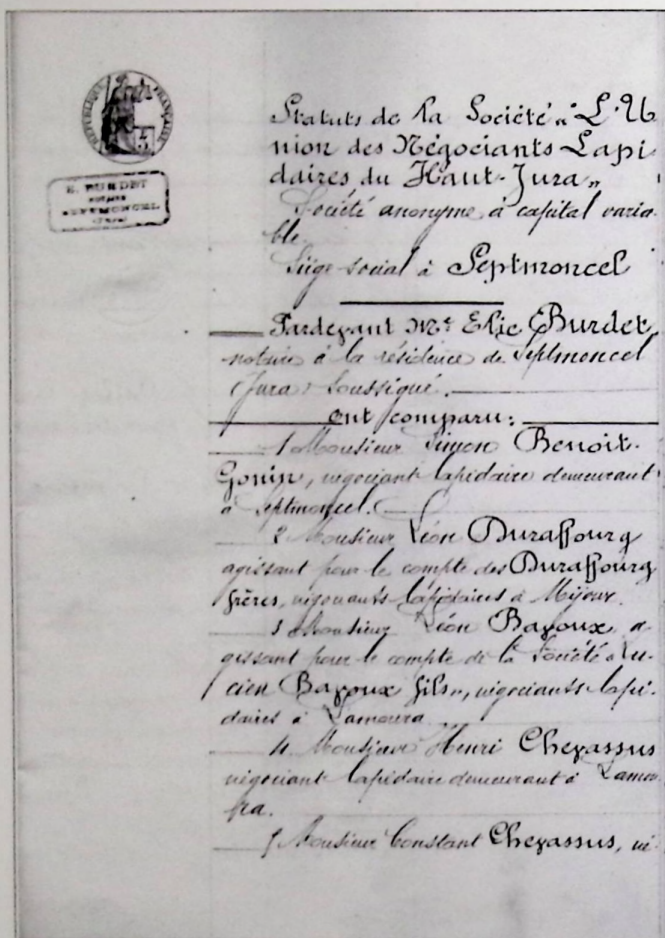 RÉPUBLIQUE FRANÇAISE
E. BURDET
NOTAIRE
SEPTMONCEL
(JURA)
Statuts de la Société "L'U
nion des Négociants Lapi
daires du Haut-Jura"
Société anonyme à capital varia-
ble.
Siège social à Septmoncel
Pardevant Me Elie Burdet,
notaire à la résidence de Septmoncel
(Jura) soussigné.
Ont comparu:
1 Monsieur Simon Benoit-
Gonin, négociant lapidaire demeurant
à Septmoncel.
2 Monsieur Léon Duraffourg
agissant pour le compte des Duraffourg
frères, négociants lapidaires à Mijoux.
3 Monsieur Léon Bavoux, a
gissant pour le compte de la Société "Lu-
cien Bavoux fils", négociants lapi-
daires à Lamoura.
4 Monsieur Henri Chevassus
négociant lapidaire demeurant à Lamou-
ra.
5 Monsieur Constant Chevassus, né